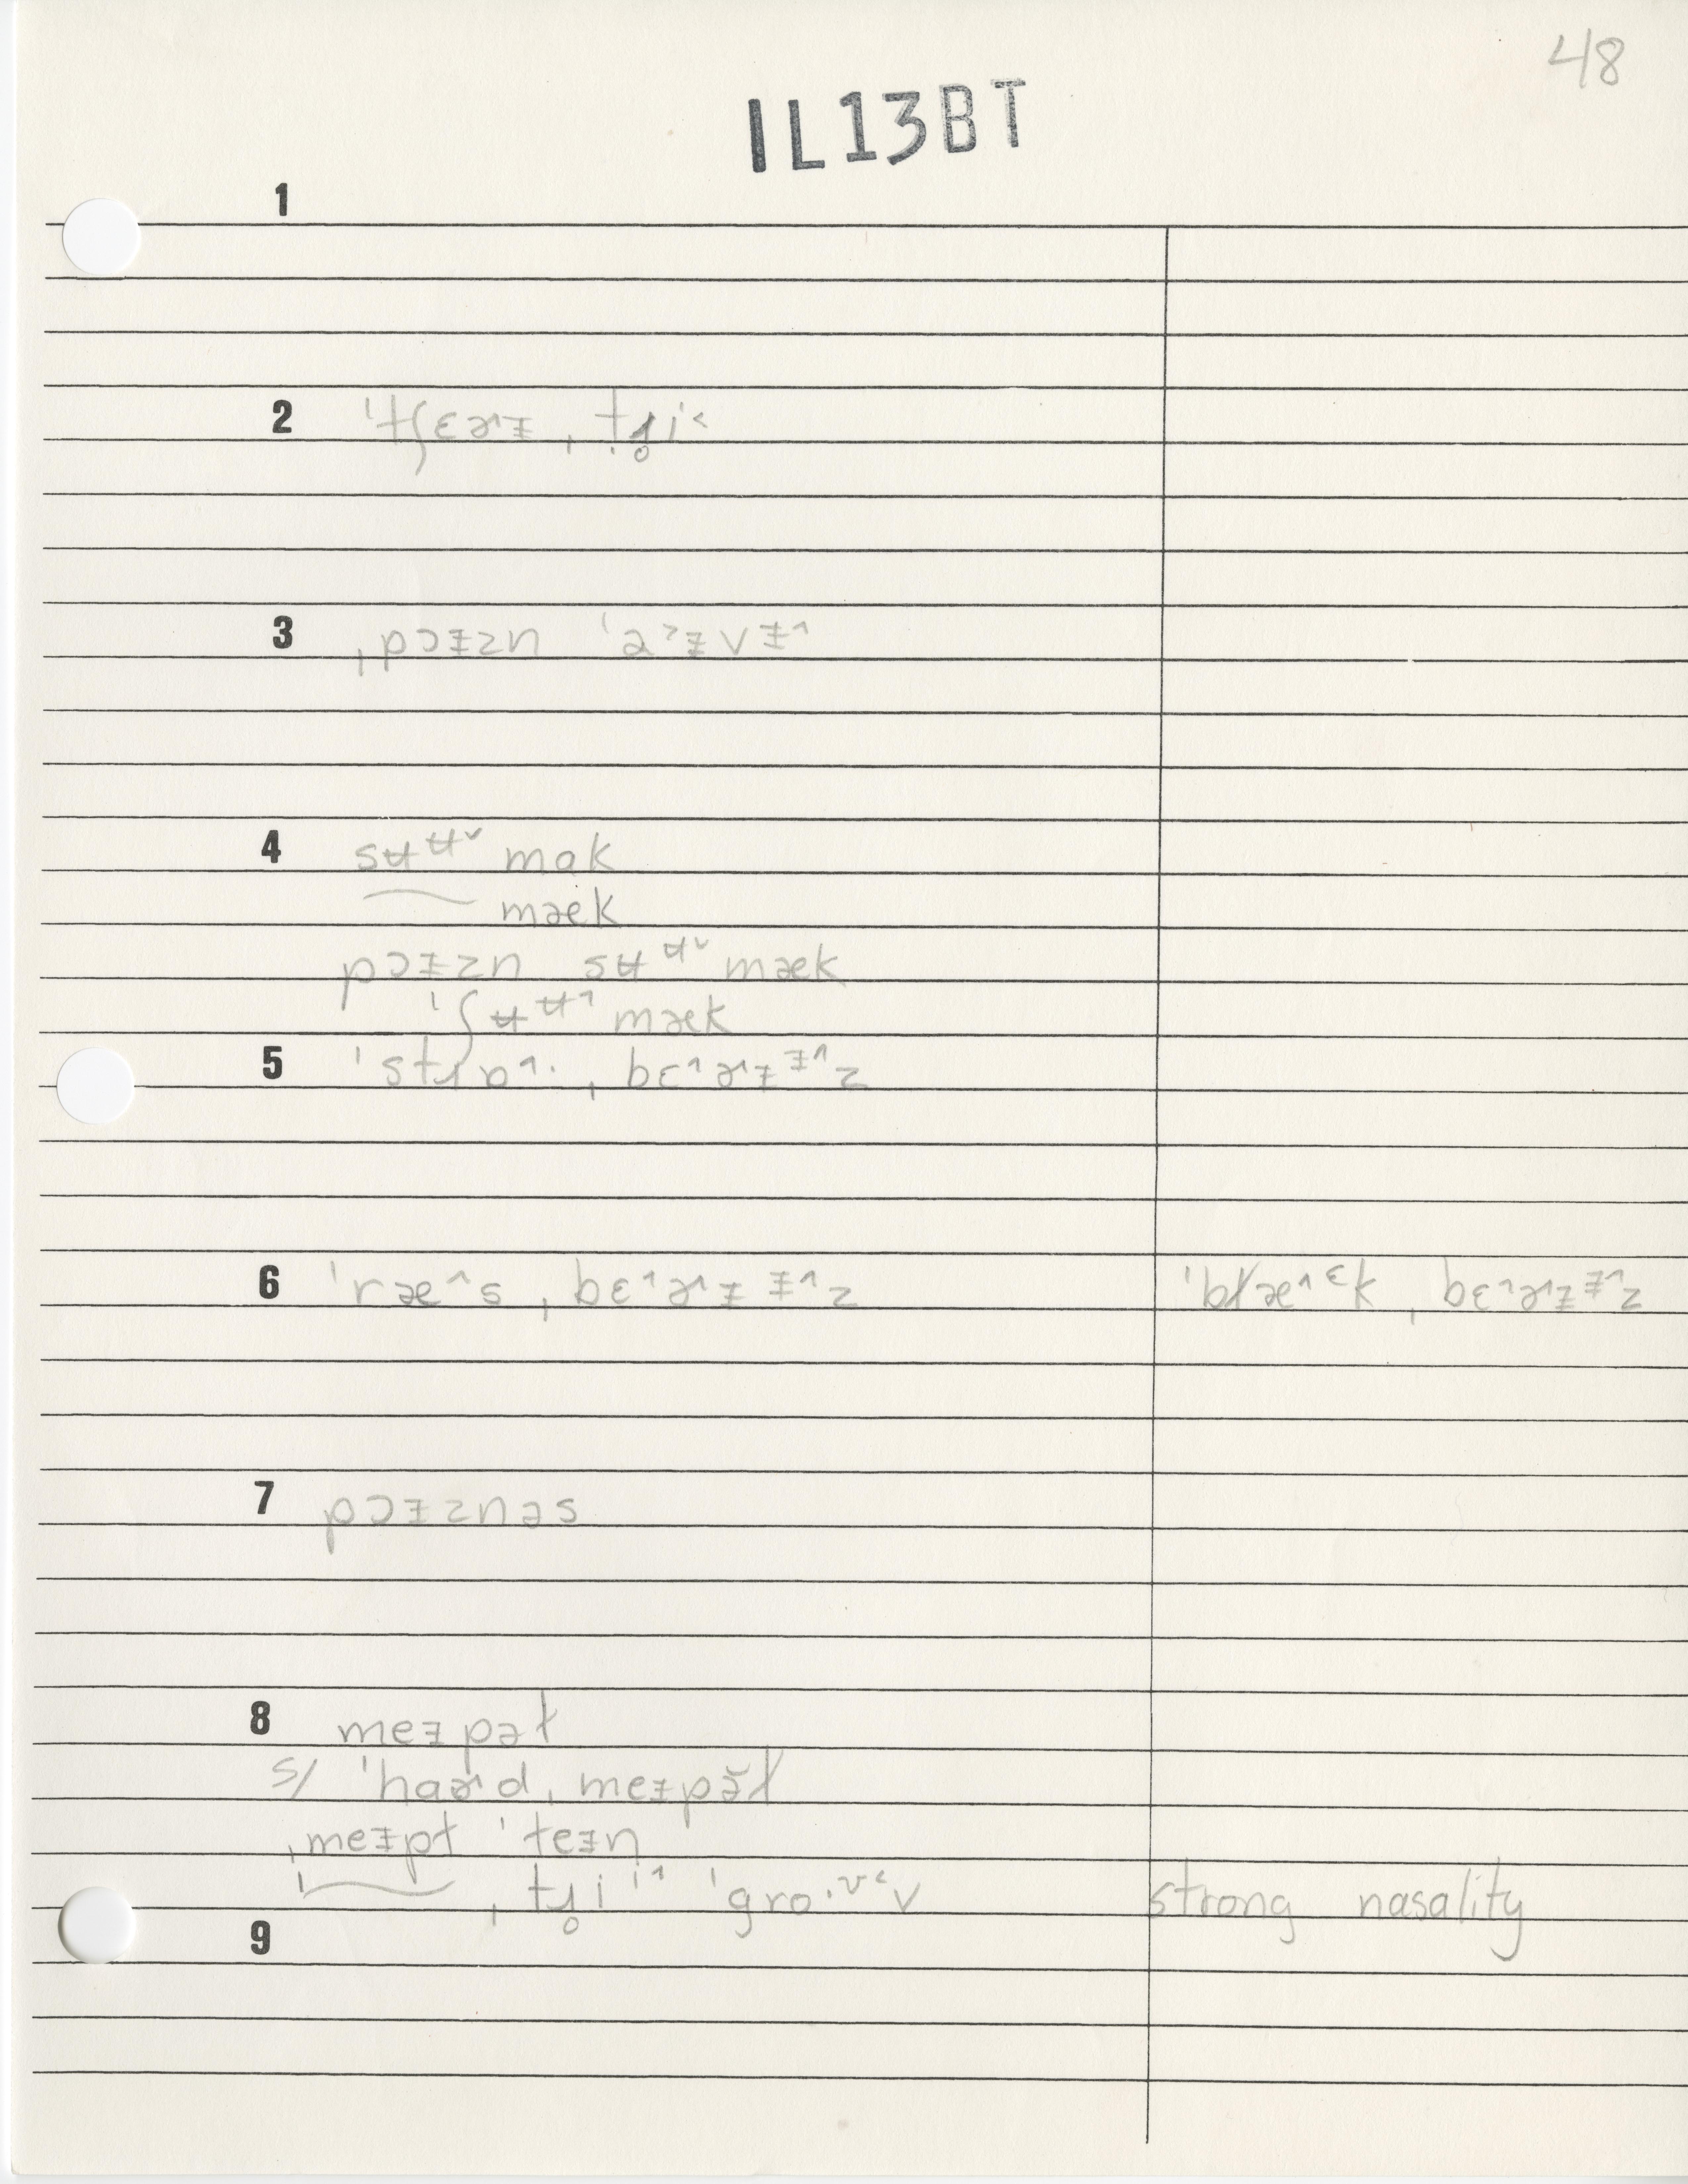 48
IL13BT
1
2 ˈtʃɛɚɨ ˌtɹ̥i˂
3 ˌpɔɨzn ˈɑ²ɨvɨ^
4 sʉʉ˅ mak
mæk
pɔɨzn sʉʉ˅ mæk
ˈʃʉʉ^ mæk
5 ˈstɹɒ^· ˌbɛ^ɚɨɨ^z
6 ˈræ^s ˌbɛ^ɚɨɨ^z
ˈblæ^ɛk ˌbɛ^ɚɨɨ^z
7 pɔɨznəs
8 meɨpəl
s/ ˈhaɚd ˌmeɨpəl
ˌmeɨpl ˈteɨn
ˌtɹ̥ii^ ˈgro·ʊ˂v
strong nasality
9